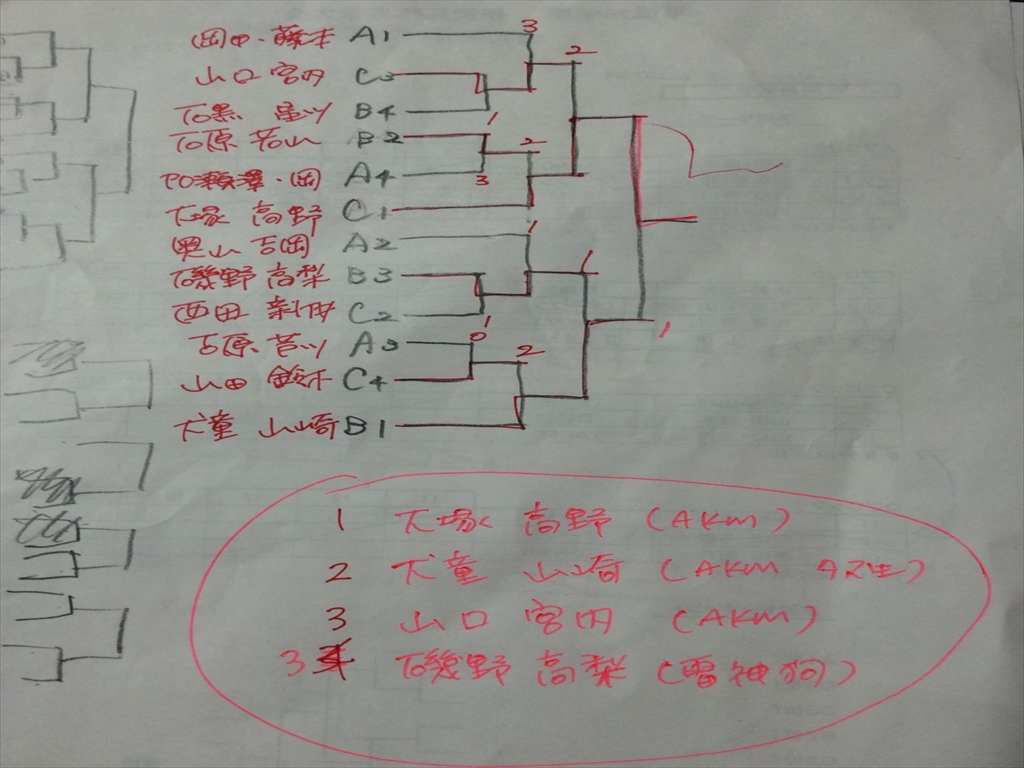 岡田・藤本 A1
山口 宮内 C3
石黒 皇川 B4
石原 若山 B2
A4
大塚 高野 C1
奥山 吉岡 A2
磯野 高梨 B3
西田 C2
吉原・芦川 A3
山田 鈴木 C4
大童 山崎 B1
3
2
1
3
2
1
1
0
2
1
1
1 大塚 高野 (AKM)
2 大童 山崎 (AKM
3 山口 宮内 (AKM)
3 磯野 高梨 (雷神狗)